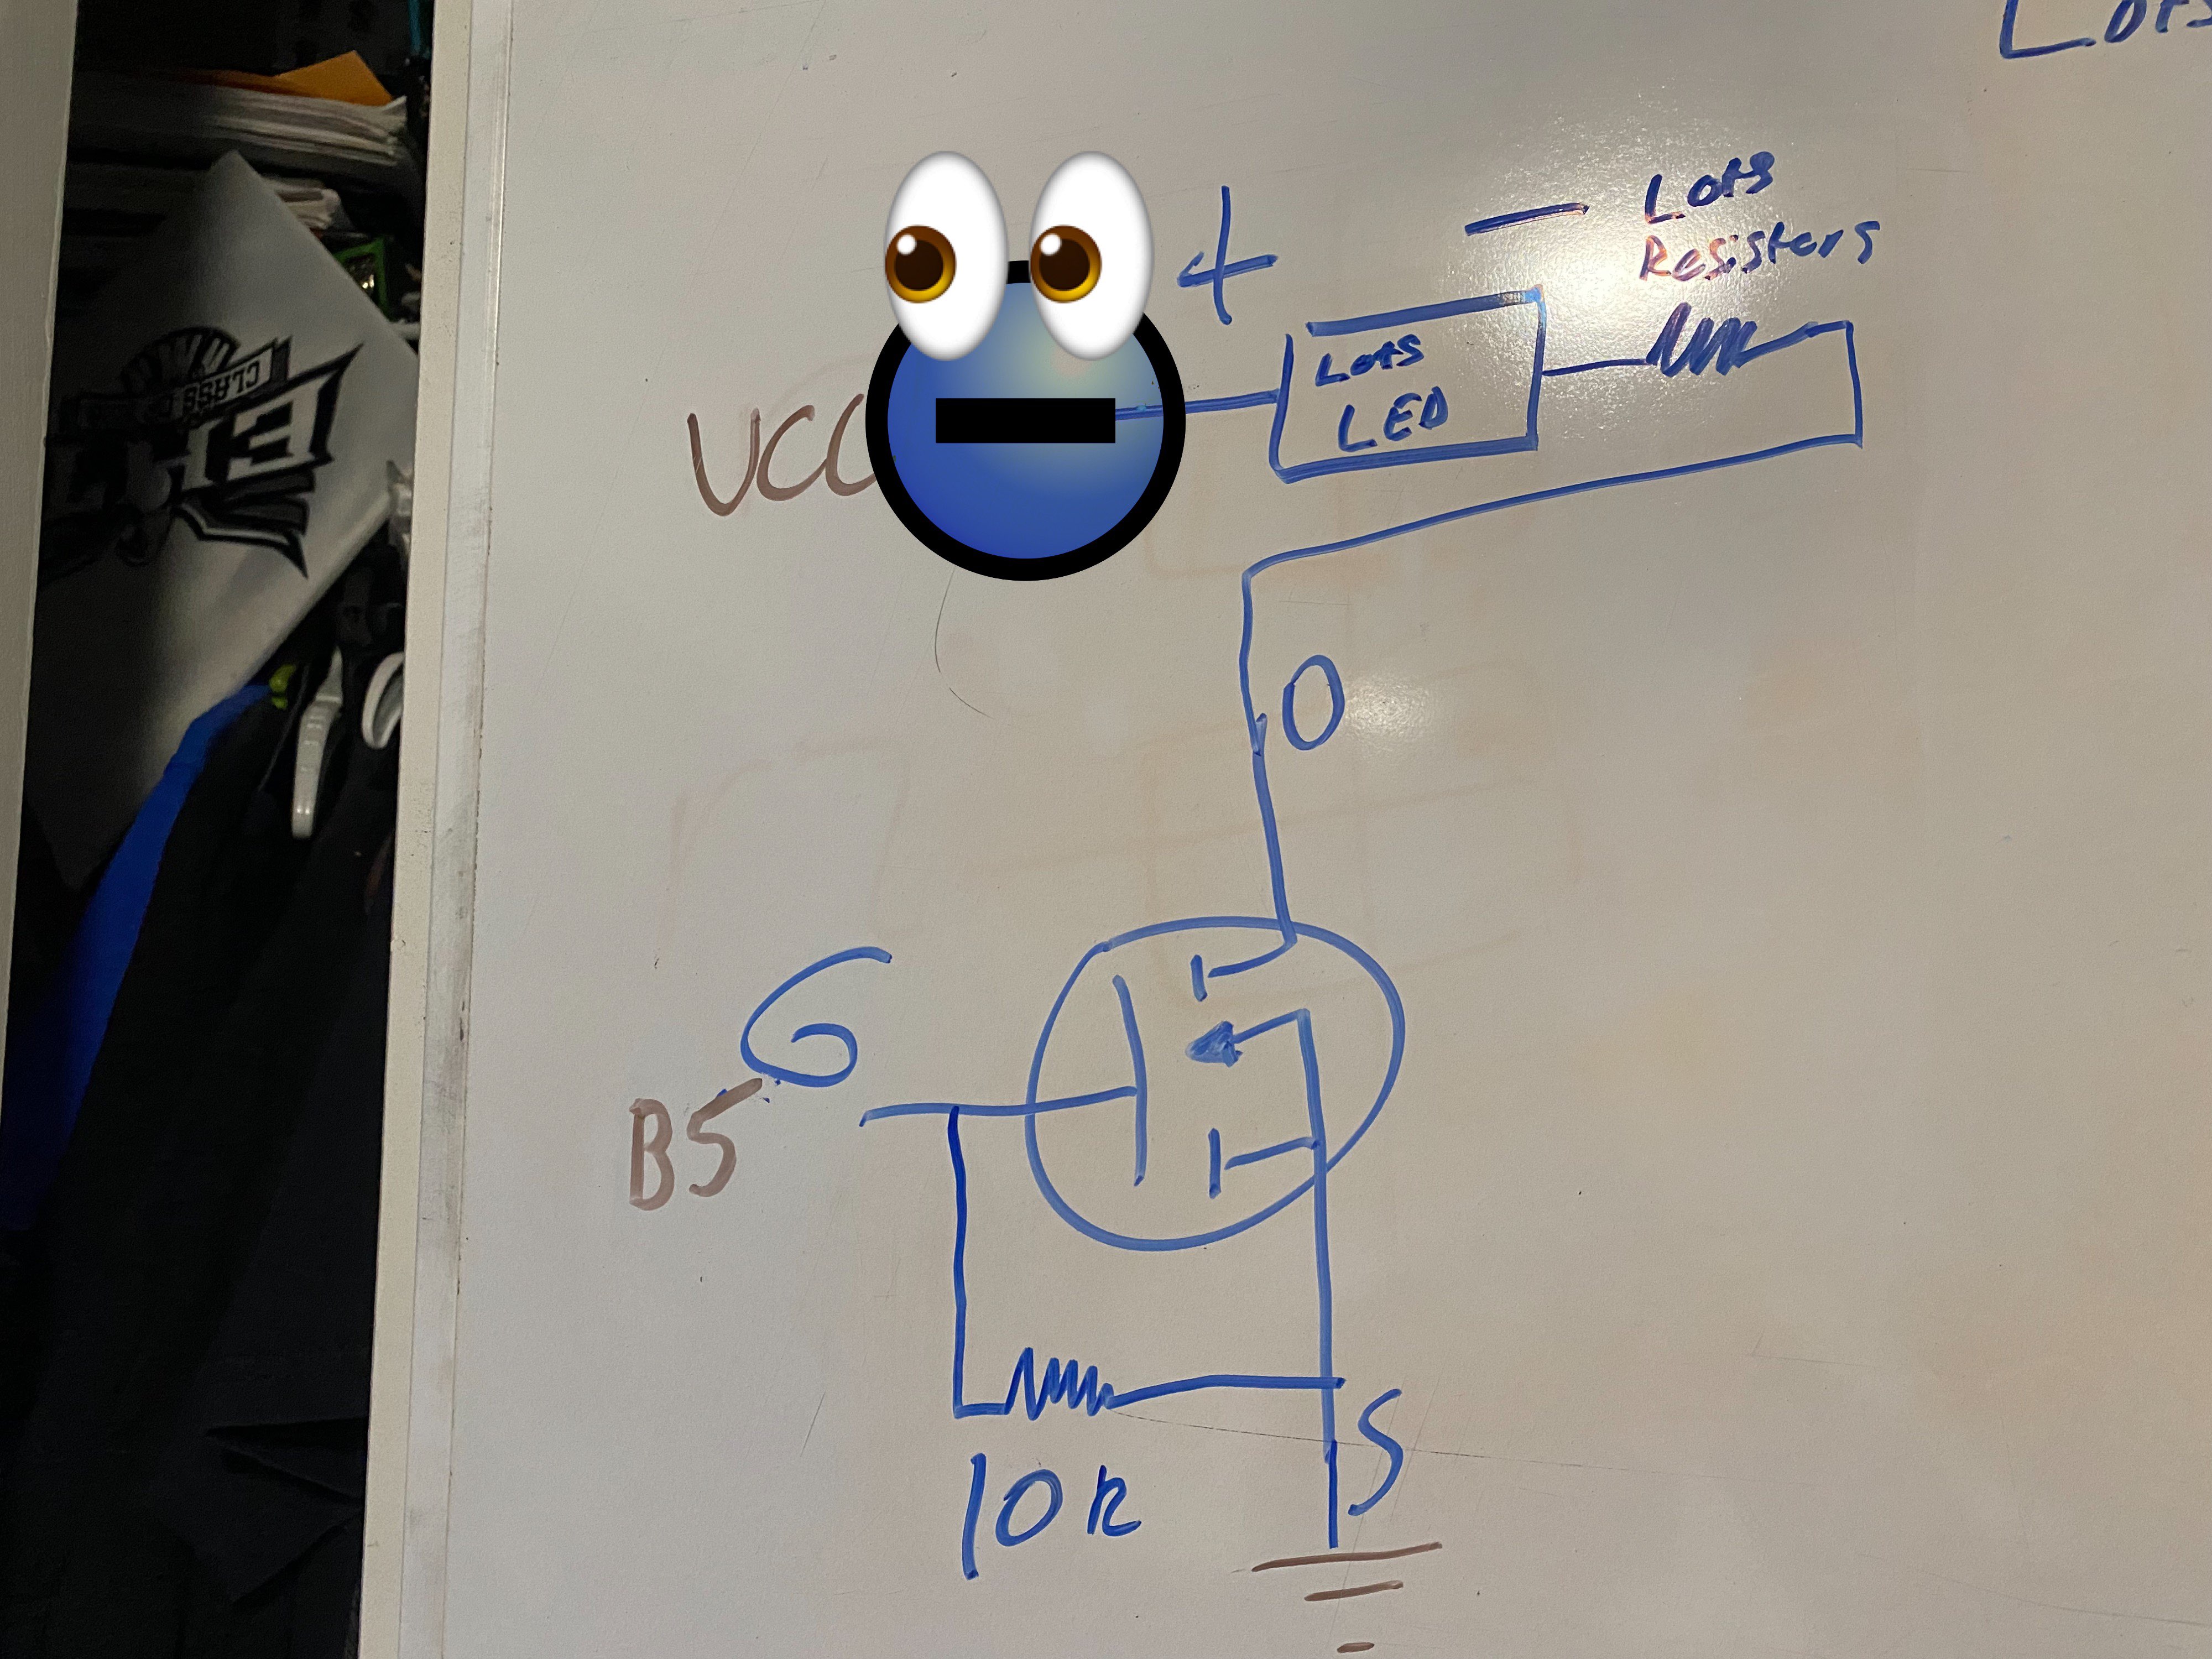 Lots
+
—
Lots
Resisters
VCC
Lots
LED
D
G
B5
10k
S
CLASS OF